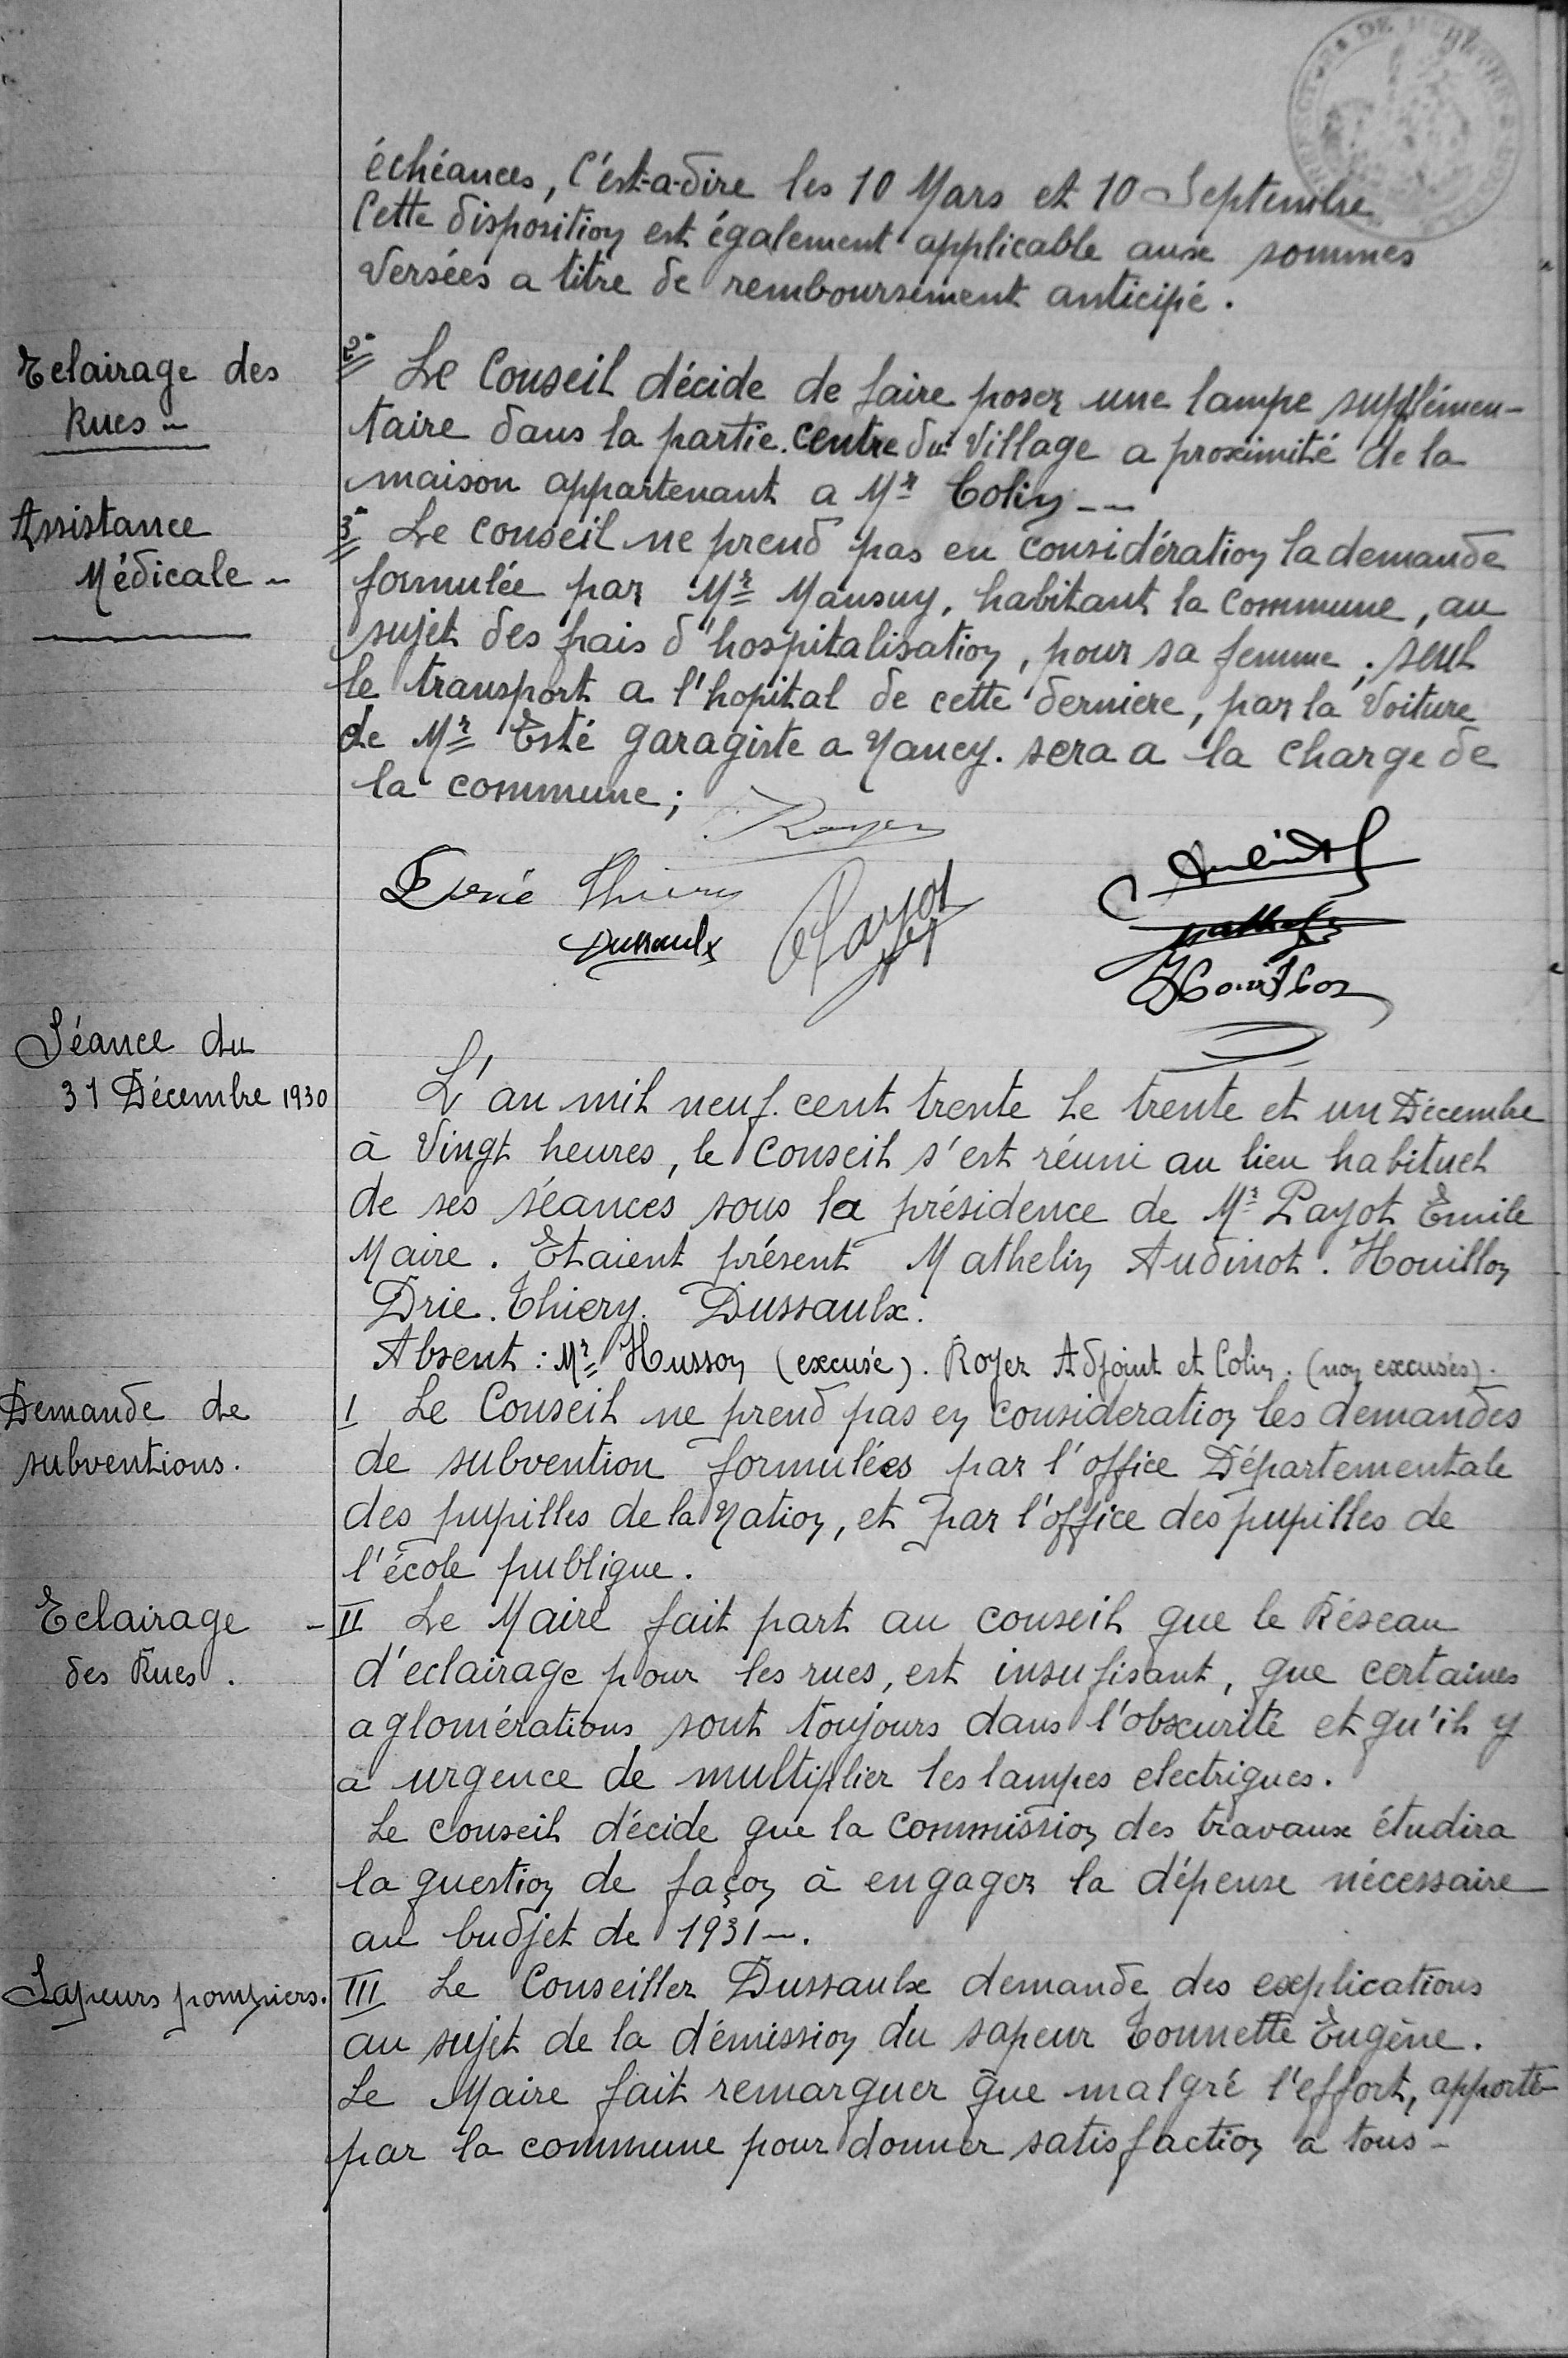 échéances, c'est-a-dire les 10 Mars et 10 Septembre
Cette disposition est également applicable aux sommes
versées a titre de remboursement anticipé.
Eclairage des
Rues -
2° Le Conseil décide de faire poser une lampe supplémen-
taire dans la partie. Centre du Village a proximité de la
maison appartenant a Mr Colin --
Assistance
Médicale -
3° Le conseil ne prend pas en considération la demande
formulée par Mr Mansuy, habitant la commune, au
sujet des frais d'hospitalisation, pour sa femme ; seul
le transport a l'hopital de cette derniere, par la voiture
de Mr Esté garagiste a Nancy. sera a la charge de
la commune;
Royer
Drié Thiery
Dussaulx
Payot
Audinot
Mathelin
Houillon
Séance du
31 Décembre 1930
L'an mil neuf. cent trente Le trente et un Décembre
à Vingt heures, le Conseil s'est réuni au lieu habituel
de ses séances sous la présidence de Mr Payot Emile
Maire. Etaient présent Mathelin Audinot. Houillon
Drie. Thiery. Dussaulx.
Absent : Mr Husson (excusé). Royer Adjoint et Colin. (non excusés).
Demande de
subventions.
I Le Conseil ne prend pas en consideration les demandes
de subvention formulées par l'office Départementale
des pupilles de la Nation, et par l'office des pupilles de
l'école publique.
Eclairage
des Rues.
- II Le Maire fait part au conseil que le Réseau
d'eclairage pour les rues, est insufisant, que certaines
aglomérations sont toujours dans l'obscurité et qu'il y
a urgence de multiplier les lampes electriques.
Le conseil décide que la Commission des travaux étudira
la question de façon à engager la dépense nécessaire
au budjet de 1931-.
Sapeurs pompiers.
III Le Conseiller Dussaulx demande des explications
au sujet de la démission du sapeur Tonnette Eugène.
Le Maire fait remarquer que malgré l'effort, apporté
par la commune pour donner satisfaction a tous -